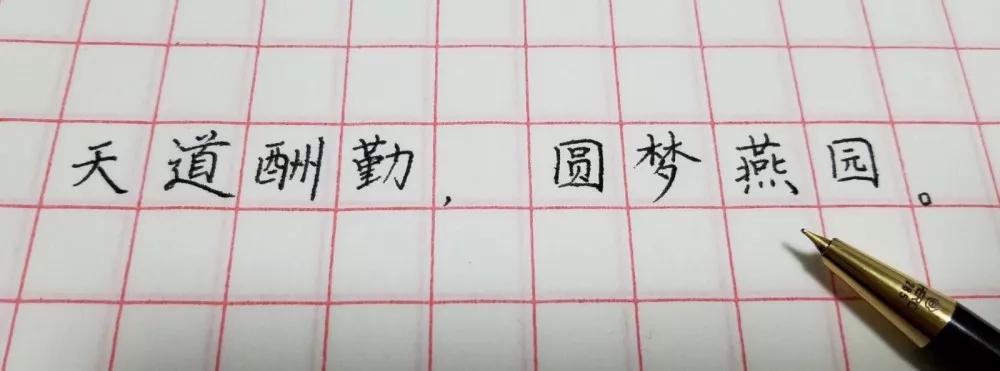 天道酬勤，圆梦燕园。